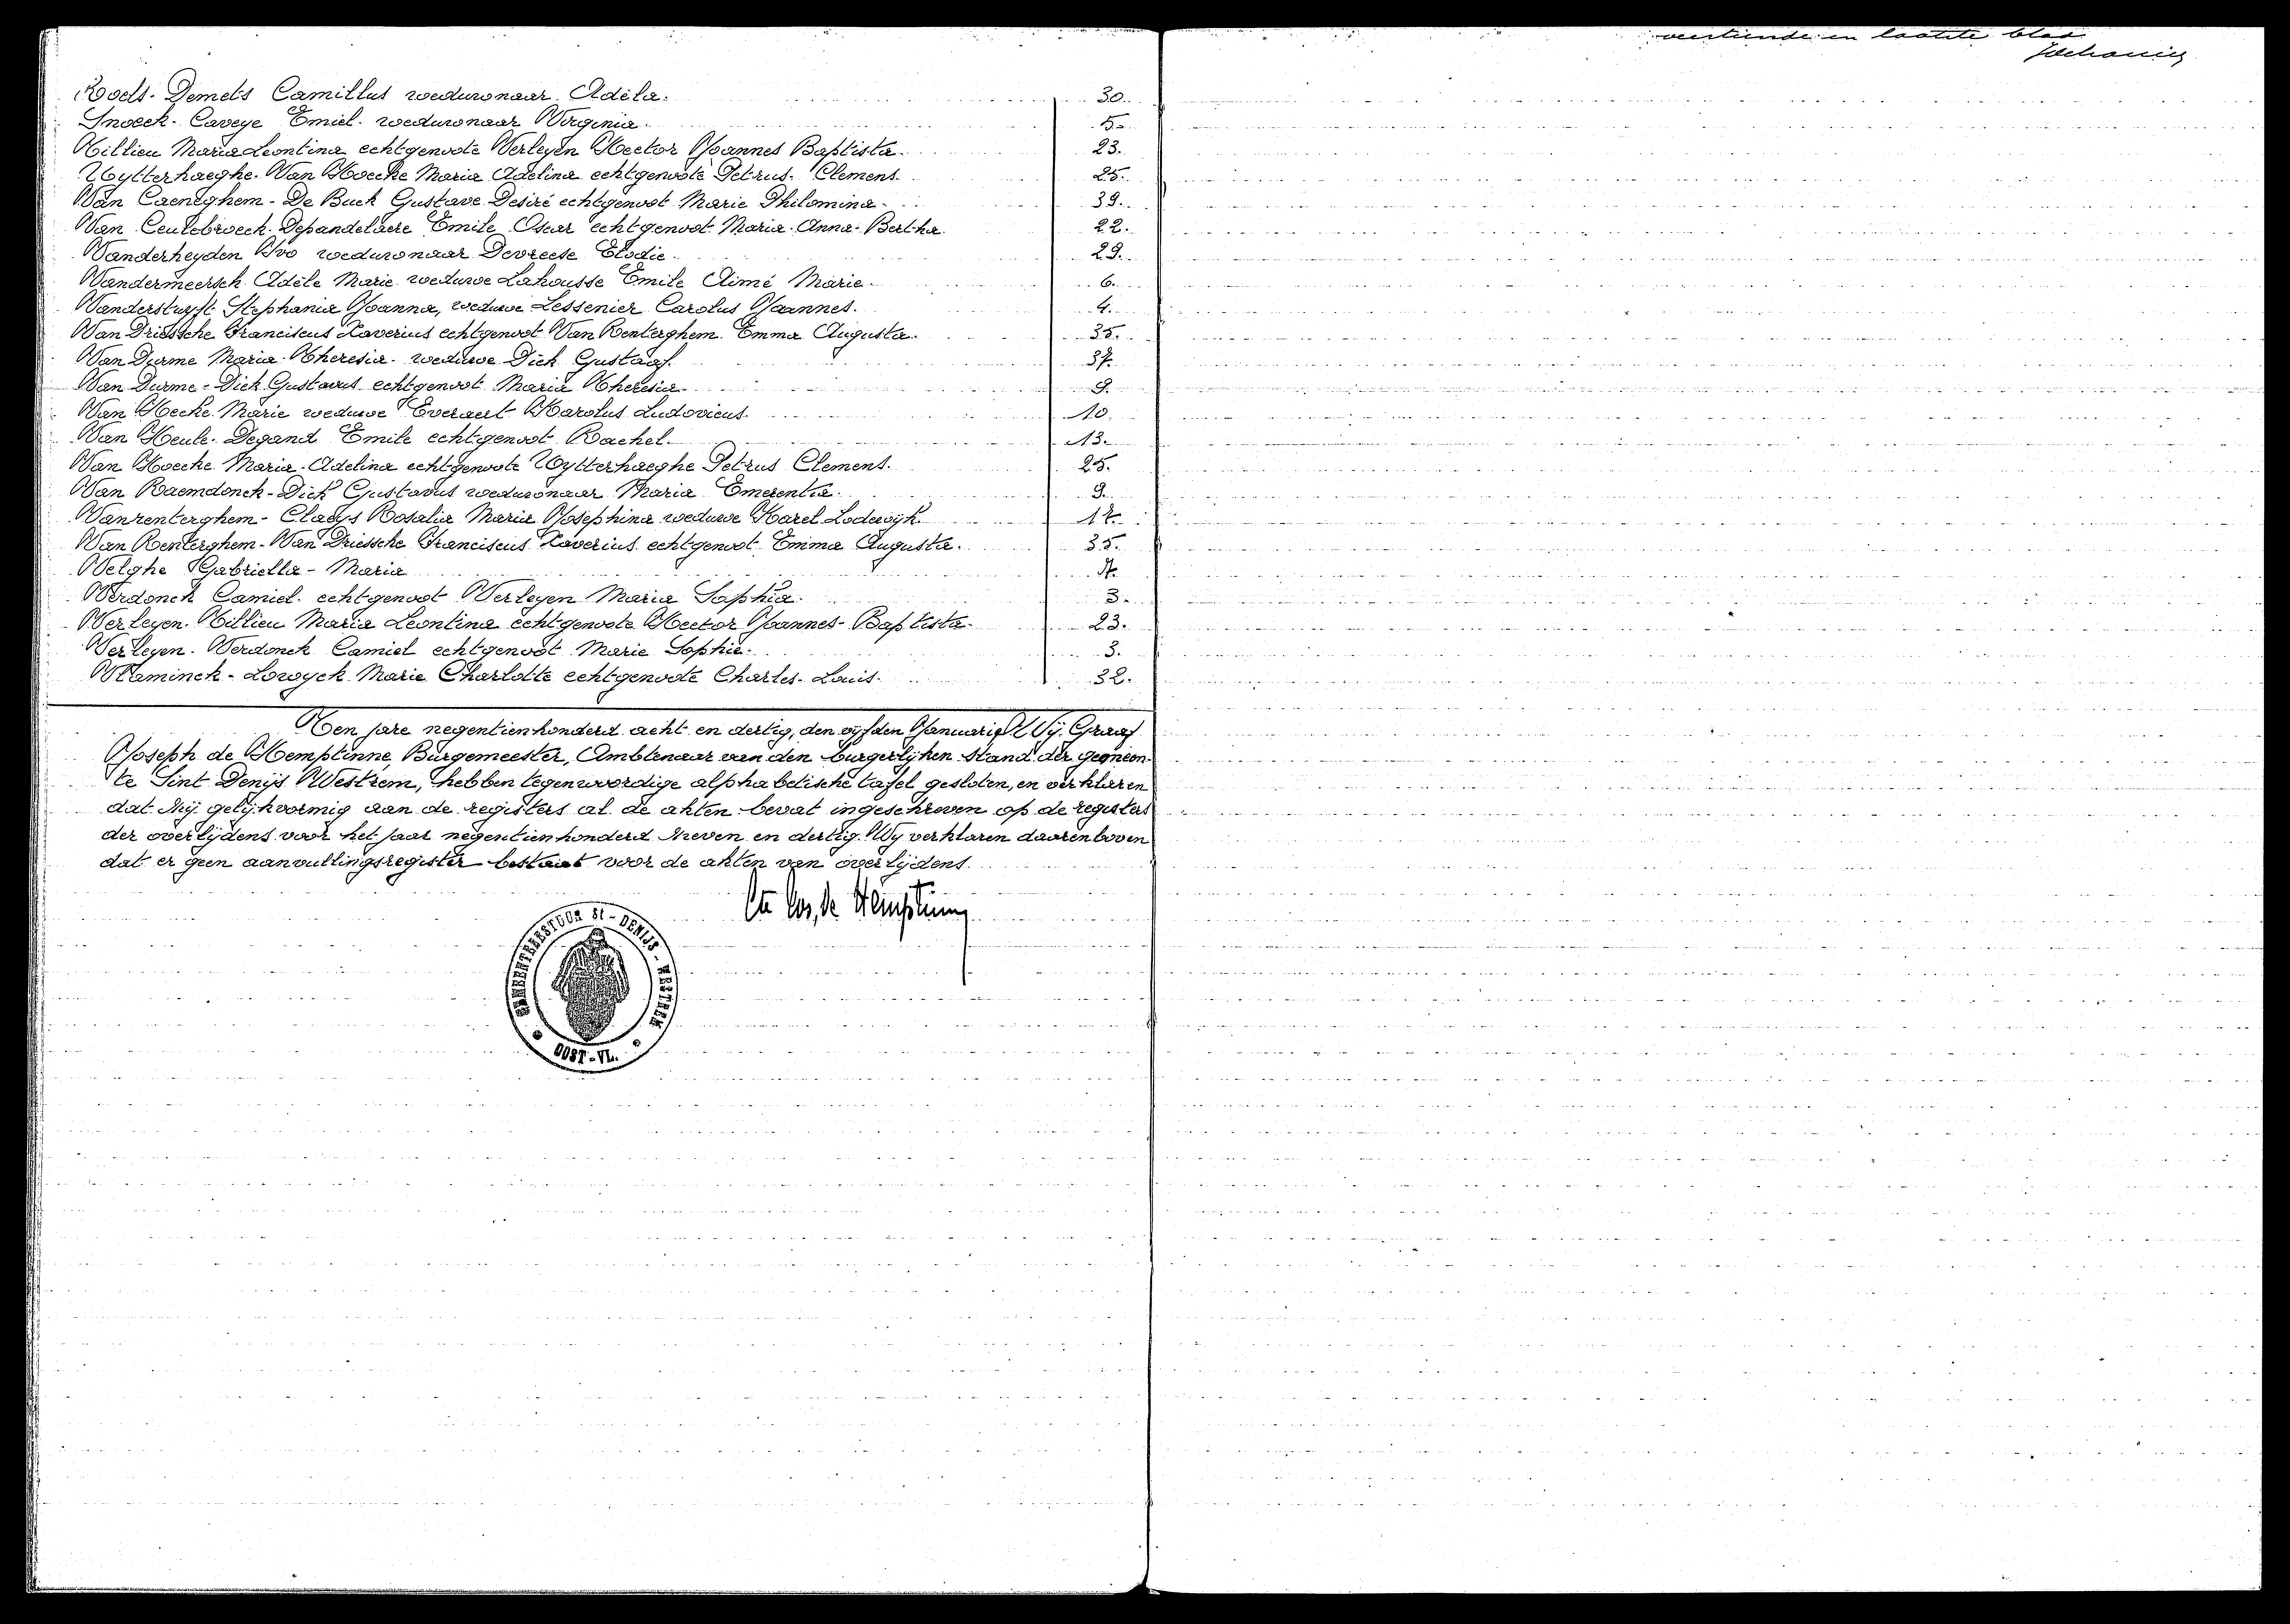 Roels-Demets Camillus weduwnaar Adèla. 30.
Snoeck-Caveye Emiel weduwnaar Virginia. 5.
Tillieu Maria Leontina echtgenoote Verleyen Hector Joannes Baptista. 23.
Uytterhaeghe-Van Hoecke Maria Adelina echtgenoote Petrus Clement. 25.
Van Caeneghem-De Buck Gustave Desiré echtgenoot Marie Philomina. 39.
Van Ceulebroeck-Depandelaere Emile Oscar echtgenoot Maria Anna Bertha 22.
Vanderheyden Ivo weduwnaar Devreese Elodie. 29.
Vandermeersch Adèle Marie weduwe Lahousse Emile Aimé Marie. 6.
Vanderstuyft Stephania Joanna, weduwe Lessenier Carolus Joannes. 4.
Van Driessche Franciscus Xaverius echtgenoot Van Renterghem Emma Augusta. 35.
Van Durme Maria Theresia weduwe Dick Gustaaf. 37.
Van Durme-Dick Gustavus echtgenoot Maria Theresia. 9.
Van Hecke Marie weduwe Everaert Karolus Ludovicus. 10.
Van Heule-Degand Emile echtgenoot Rachel. 13.
Van Hoecke Maria Adelina echtgenoote Uytterhaeghe Petrus Clement. 25.
Van Raemdonck-Dick Gustavus weduwnaar Maria Emerentia. 9.
Vanrenterghem-Claeys Rosalia Maria Josephina weduwe Karel Lodewijk. 17.
Van Renterghem-Van Driessche Franciscus Xaverius echtgenoot Emma Augusta. 35.
Velghe Gabriella-Maria
Verdonck Camiel echtgenoot Verleyen Maria Sophia. 3.
Verleyen-Tillieu Maria Leontina echtgenoote Hector Joannes-Baptista. 23.
Verleyen-Verdonck Camiel echtgenoot Marie Sophie. 3.
Vlaminck-Lowyck Marie Charlotte echtgenoote Charles-Louis. 32.
Ten jare negentienhonderd acht en dertig, den vyfden Januarie Wij. Graaf
Joseph de Hemptinne, Burgemeester, Ambtenaar van den burgerlijken stand der gemeen-
te Sint Denijs Westrem, hebben tegenwoordige alphabetische tafel gesloten, en verklaren
dat zij gelijkvormig aan de registers al de akten bevat ingeschreven op de registers
der overlijdens voor het jaar negentienhonderd zeven en dertig. Wy verklaren daarenboven
dat er geen aanvullingsregister bestaat voor de akten van overlijdens.
Cte Jos. de Hemptinne
GEMEENTEBESTUUR St-DENIJS-WESTREM
OOST-VL.
veertiende en laatste blad